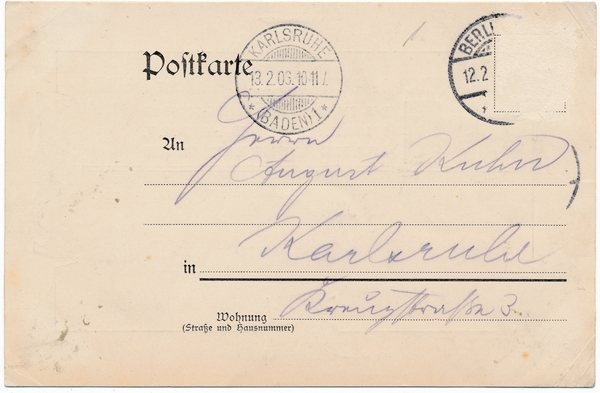 Postkarte
KARLSRUHE
13.2.03.10-11V.
* (BADEN) 1 *
BERLI
12.2
An
Herrn
August Kuhn
in
Karlsruhe
Kreuzstraße 3.
Wohnung
(Straße und Hausnummer)